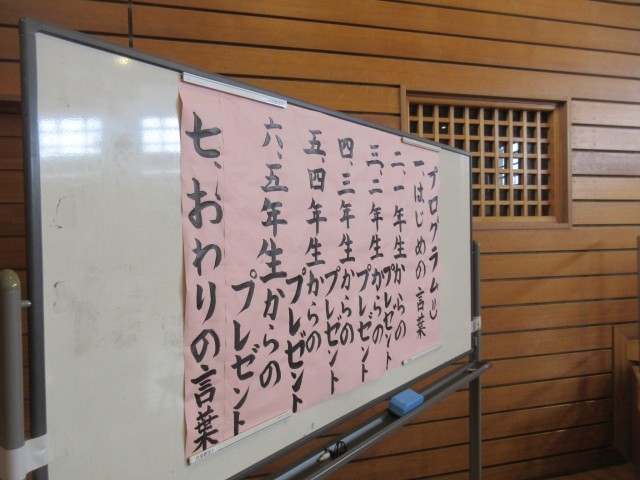 プログラム
一、はじめの言葉
二、一年生からの
プレゼント
三、二年生からの
プレゼント
四、三年生からの
プレゼント
五、四年生からの
プレゼント
六、五年生からの
プレゼント
七、おわりの言葉